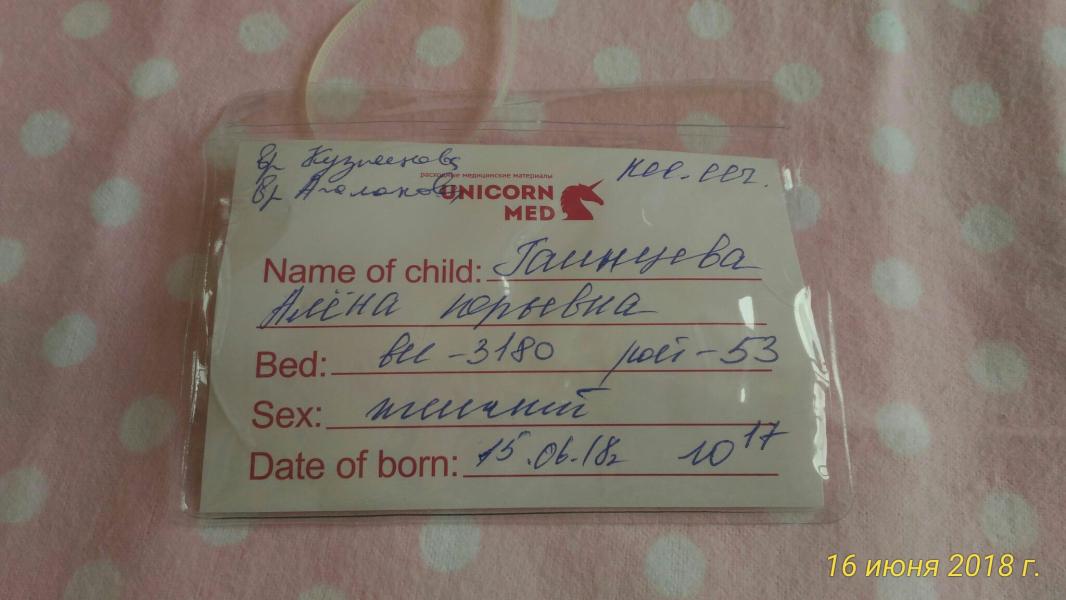 вр Кузнецова
расходные медицинские материалы
вр Агалакова
UNICORN
MED
кес. сеч.
Name of child: Гаинцева
Алёна Юрьевна
Bed: вес - 3180 рост - 53
Sex: женский
Date of born: 15.06.18г 10 17
16 июня 2018 г.